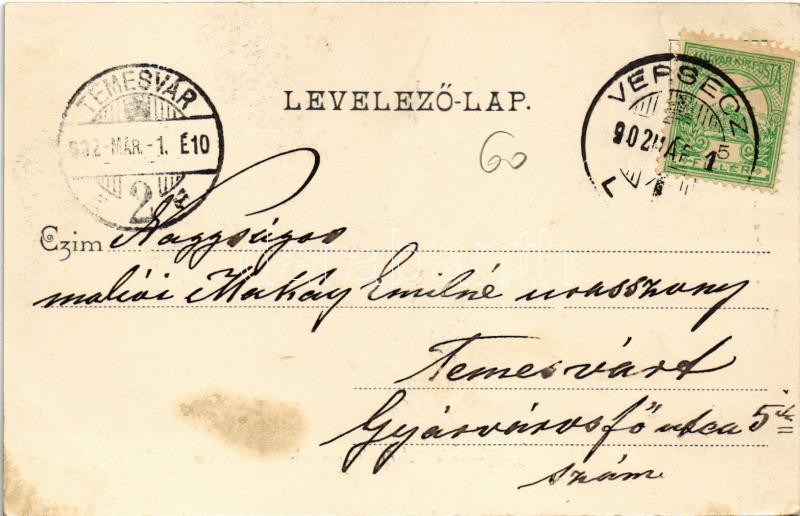 MAGYAR KIR. POSTA
5
FILLÉR
VERSECZ
902 MÁR 1
TEMESVÁR
902-MÁR.-1. É10
2
LEVELEZŐ-LAP.
60
Czim Nagyságos
Makáy Emilné urasszony
Temesvárt
Gyárváros fő utca 5ik
szám